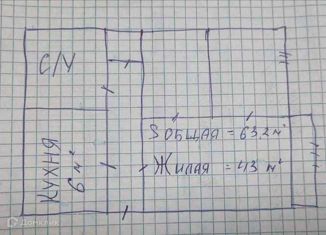 С/У
S общая = 63,2 м²
Жилая = 43 м²
КУХНЯ
6 м²
Домклик